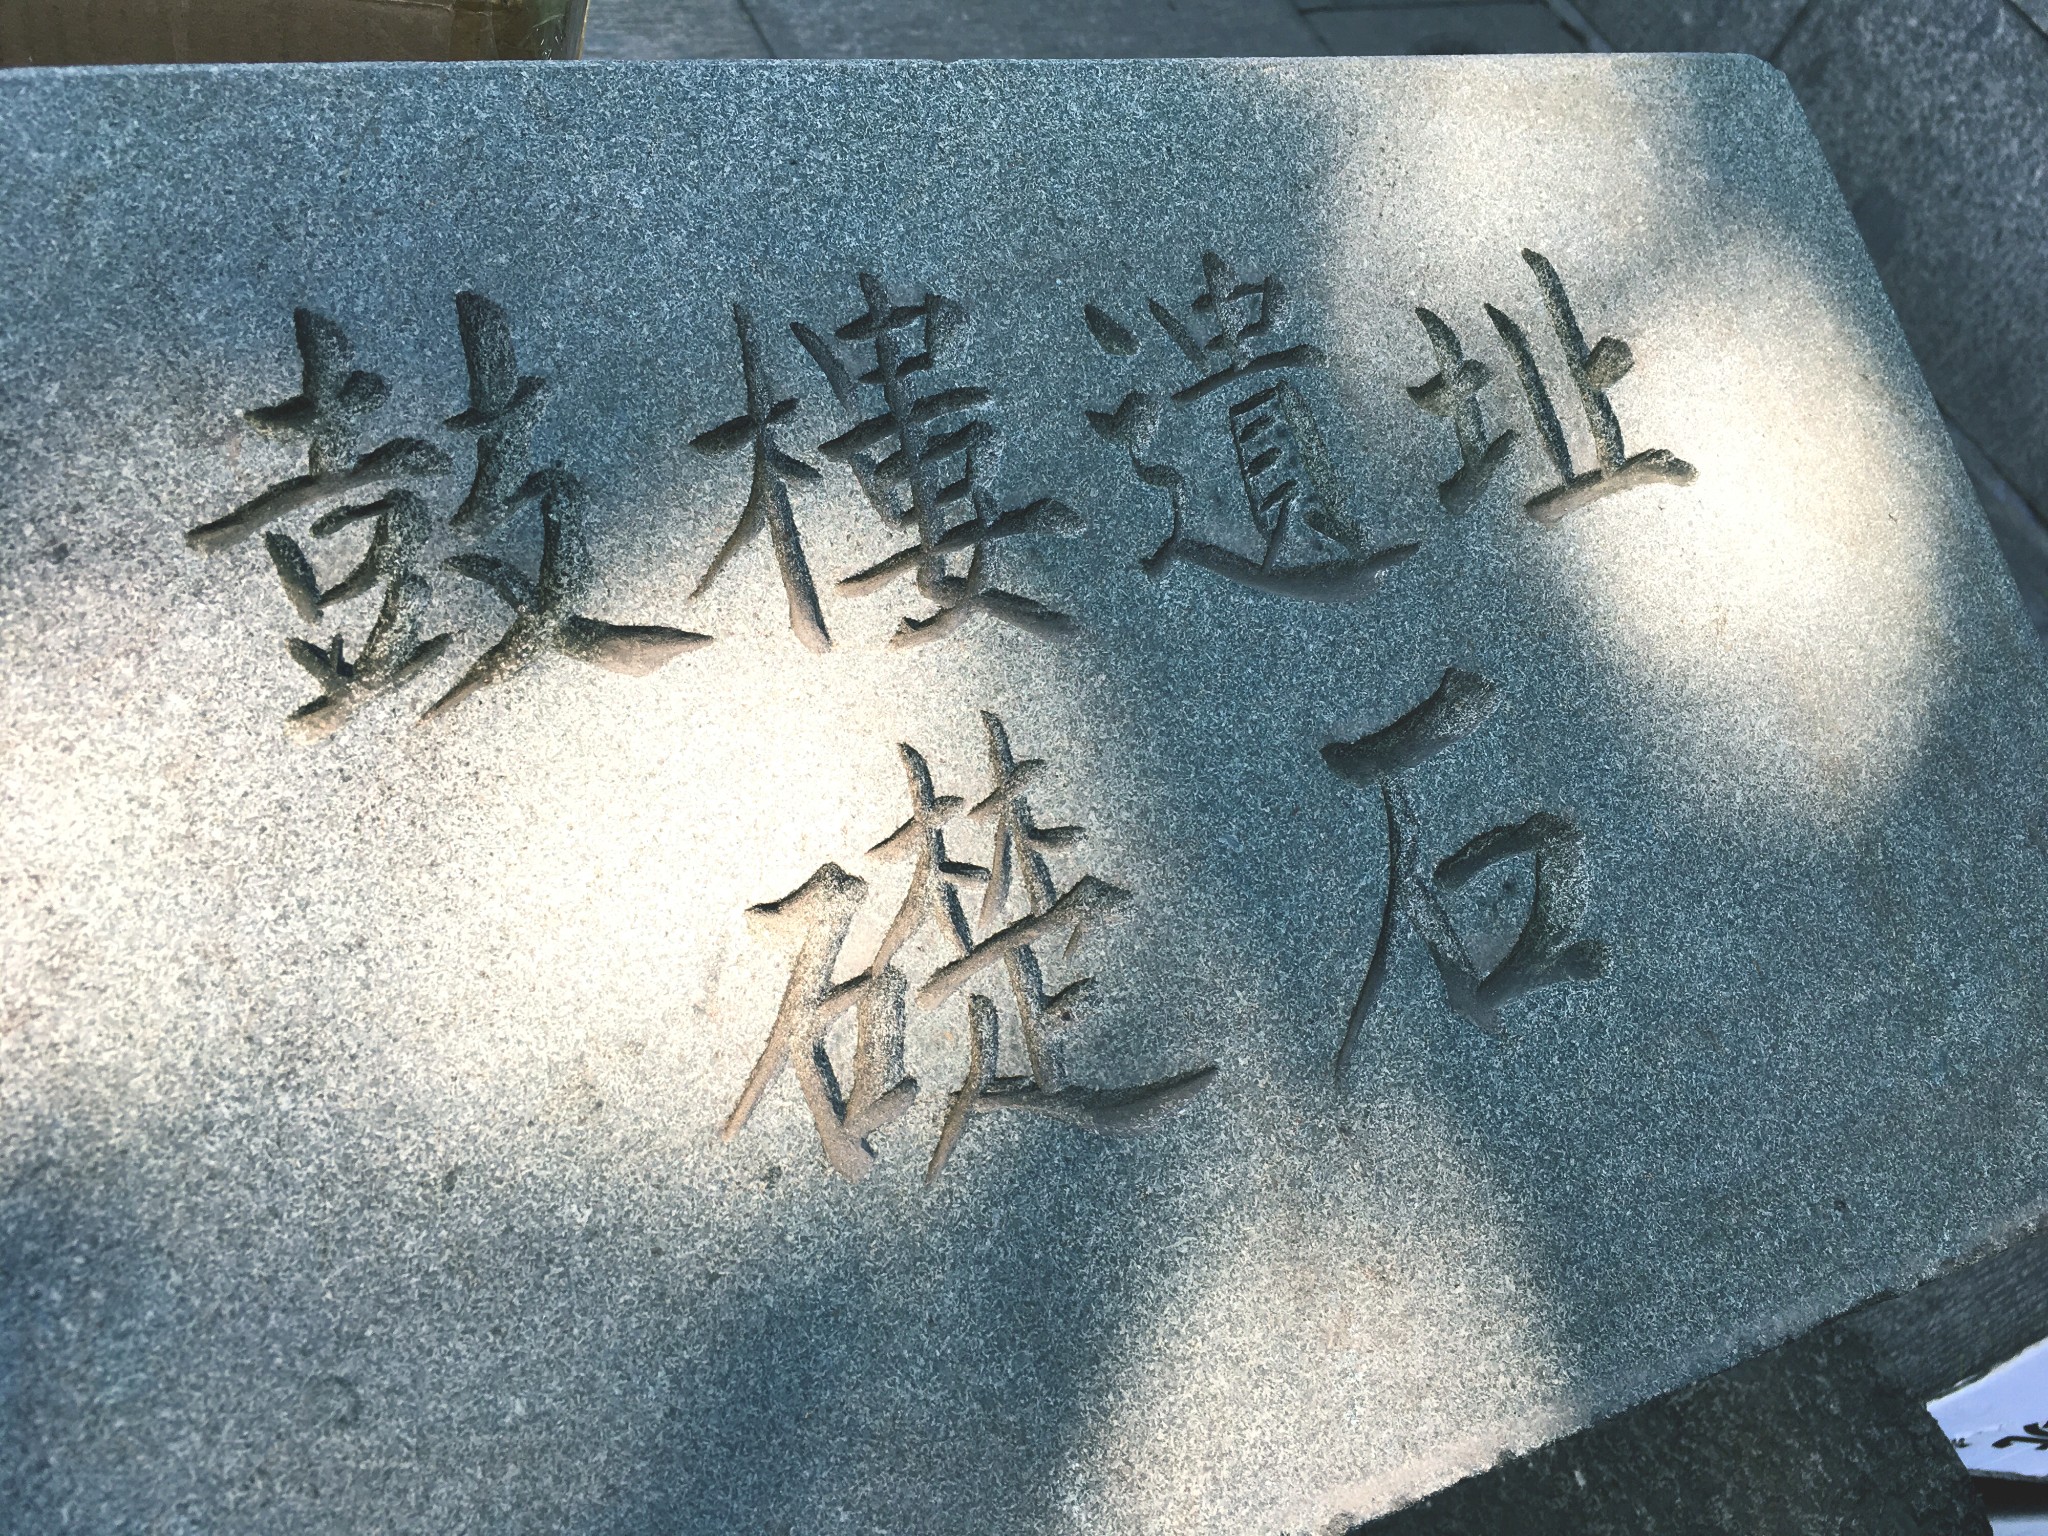 鼓樓遺址
礎石